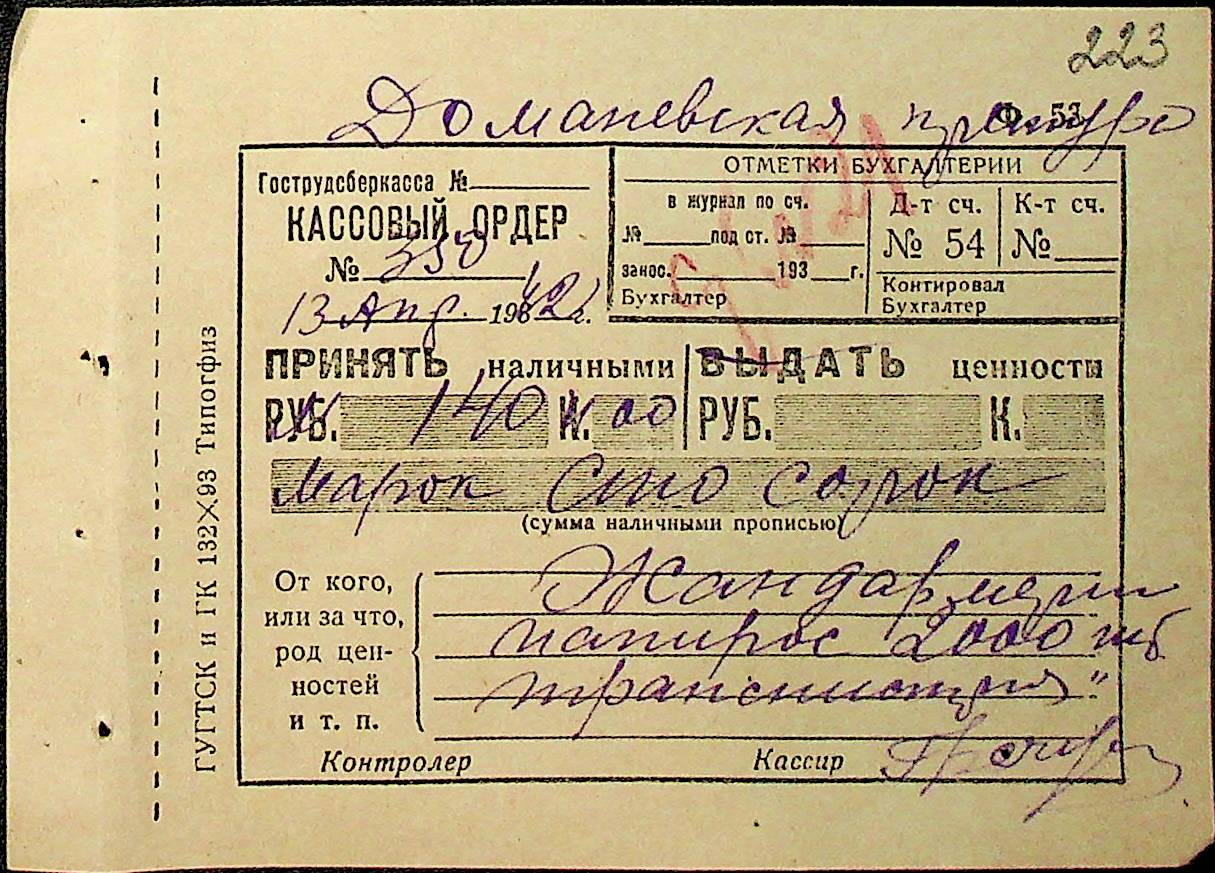 223
Доманевская претура
Ф. 53
Гострудсберкасса №
КАССОВЫЙ ОРДЕР
№ 350
13 Апр. 1942 г.
ОТМЕТКИ БУХГАЛТЕРИИ
в журнал по сч.
№ под ст. №
занос. 193 г.
Бухгалтер
Д-т сч.
№ 54
К-т сч.
№
Контировал
Бухгалтер
ПРИНЯТЬ наличными
РУБ. 140 К. 00
ВЫДАТЬ ценности
РУБ. К.
Марок Сто сорок
(сумма наличными прописью)
От кого,
или за что,
род цен-
ностей
и т. п.
Жандармерии
папирос 2000 шт
Контролер
Кассир
ГУГТСК и ГК 132×93 Типогфиз